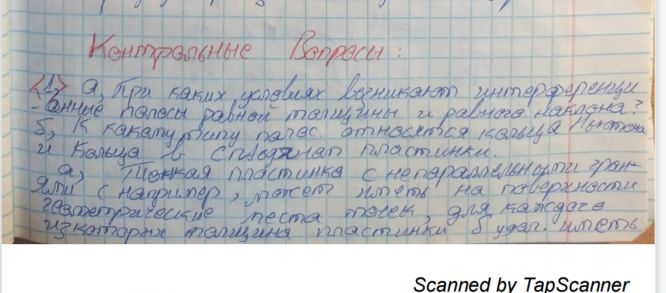 Контрольные Вопросы:
<1> а, При каких условиях возникают интерференци
-онные полосы равной толщины и равного наклона?
б, К какому типу полос относятся кольца Ньютона
и Кольца в слюдян пластинки.
а, Тонкая пластинка с непараллельными гран-
ями (например, может иметь на поверхности
геометрические места точек, для каждого
из которых толщина пластинки б удал. иметь
Scanned by TapScanner